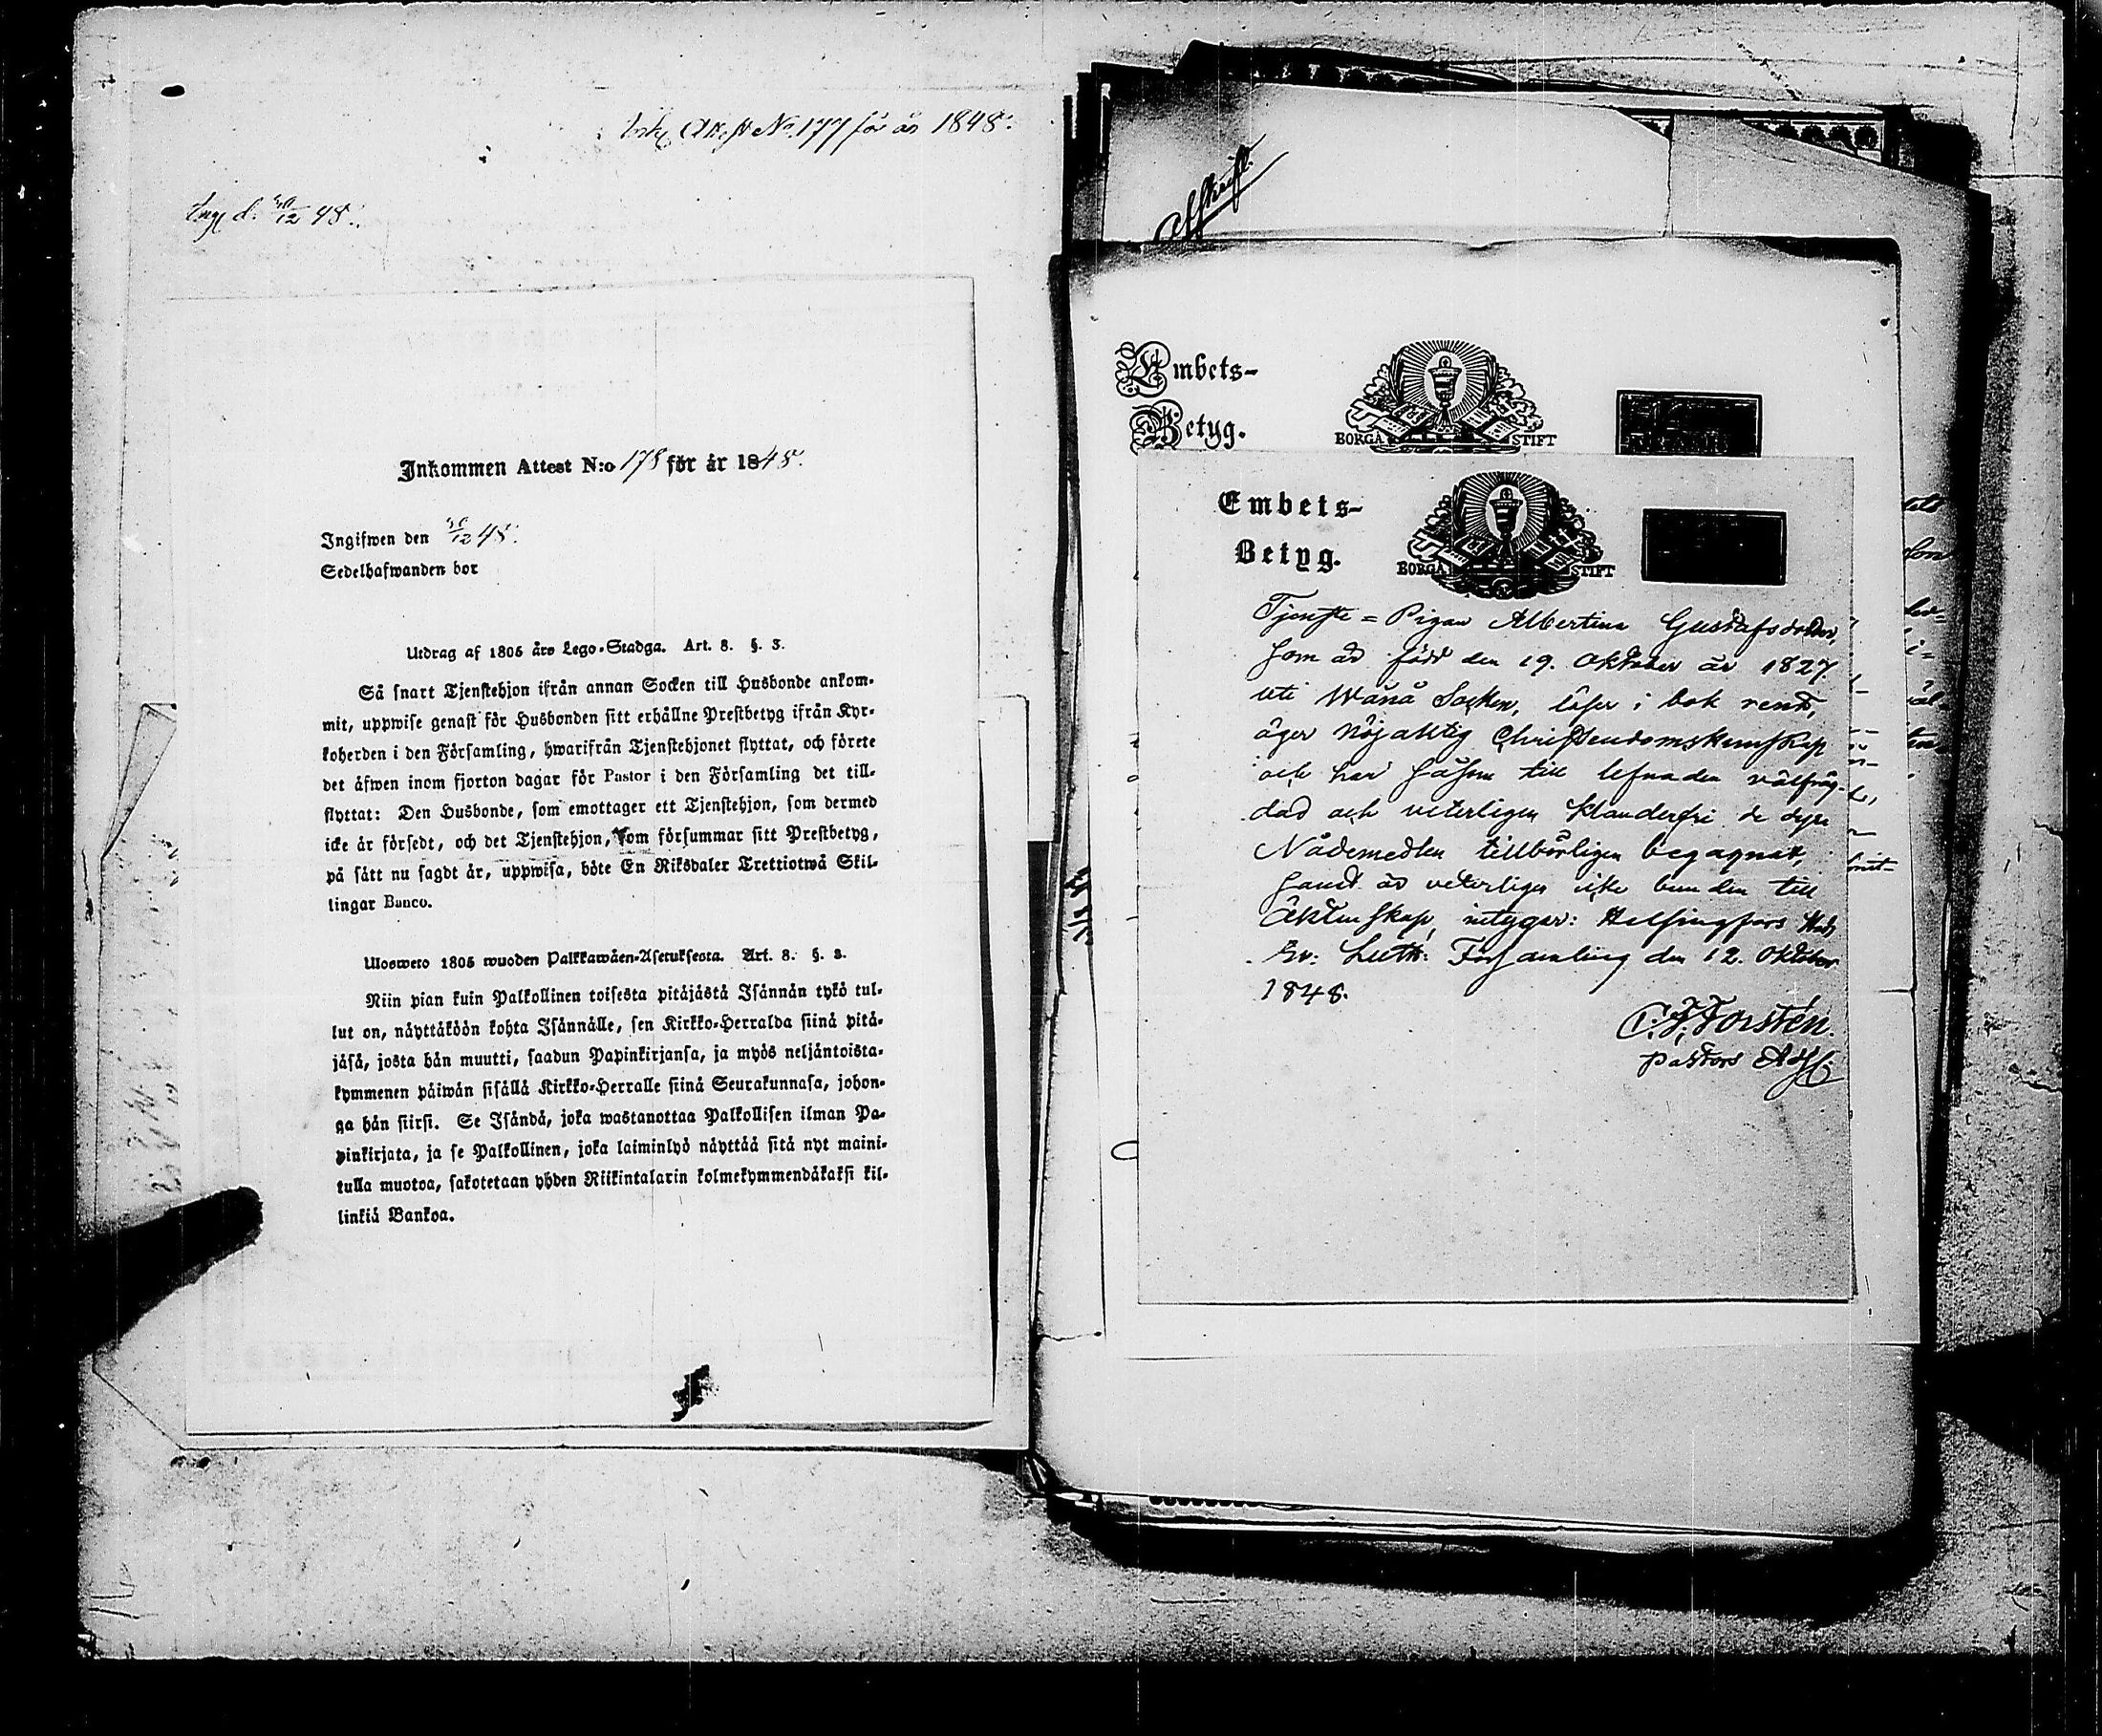 Ink. Attest No. 177 för år 1848.
Ing. d. 30/12 48.
Inkommen Attest N:o 178 för år 1848.
Ingifwen den 30/12 48.
Sedelhafwanden bor
Utdrag af 1805 års Lego-Stadga. Art. 8. §. 3.
Så snart Tjenstehjon ifrån annan Socken till Husbonde ankom-
mit, uppwise genast för Husbonden sitt erhållne Prestbetyg ifrån Kyr-
koherden i den Församling, hwarifrån Tjenstehjonet flyttat, och förete
det äfwen inom fjorton dagar för Pastor i den Församling det till-
flyttat: Den Husbonde, som emottager ett Tjenstehjon, som dermed
icke är försedt, och det Tjenstehjon, som försummar sitt Prestbetyg,
på sätt nu sagdt är, uppwisa, böte En Riksdaler Trettiotwå Skil-
lingar Banco.
Ulosweto 1805 wuoden Palkkawäen-Asetuksesta. Art. 8. §. 3.
Niin pian kuin Palkollinen toisesta pitäjästä Isännän tykö tul-
lut on, näyttäköön kohta Isännälle, sen Kirkko-Herralda siinä pitä-
jäsä, josta hän muutti, saadun Papinkirjansa, ja myös neljäntoista-
kymmenen päiwän sisällä Kirkko-Herralle siinä Seurakunnasa, johon-
ga hän siirsi. Se Isändä, joka wastanottaa Palkollisen ilman Pa-
pinkirjata, ja se Palkollinen, joka laiminlyö näyttää sitä nyt maini-
tulla muotoa, sakotetaan yhden Riikintalarin kolmekymmendäkaksi kil-
linkiä Bankoa.
Afskrift.
Embets-
Betyg.
BORGÅ STIFT
Embets-
Betyg.
BORGÅ STIFT
Tjenste=Pigan Albertina Gustafsdotter,
som är född den 19. Oktober år 1827.
uti Wånå Socken, läser i bok rent,
äger nöjaktig Christendomskunskap
och har såsom till lefnaden välfräg-
dad och veterligen klanderfri de dyra
Nådemedlen tillbörligen begagnat,
samt är veterligen icke bunden till
Äktenskap, intygar: Helsingfors
Ev: Luth: Församling den 12. Oktober
1848.
Forstén.
Pastors Adj.